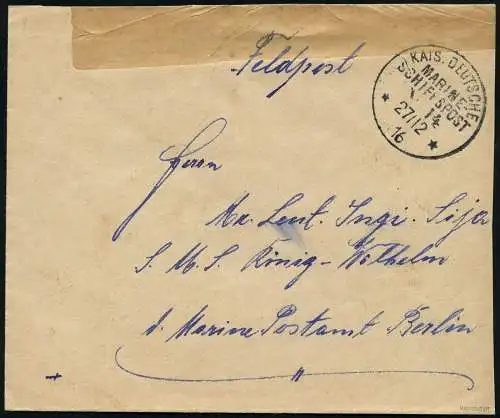 Feldpost
KAIS. DEUTSCHE
MARINE
SCHIFFSPOST
27/12
16
Herrn
S. M. S. König-Wilhelm
d. Marine Postamt Berlin